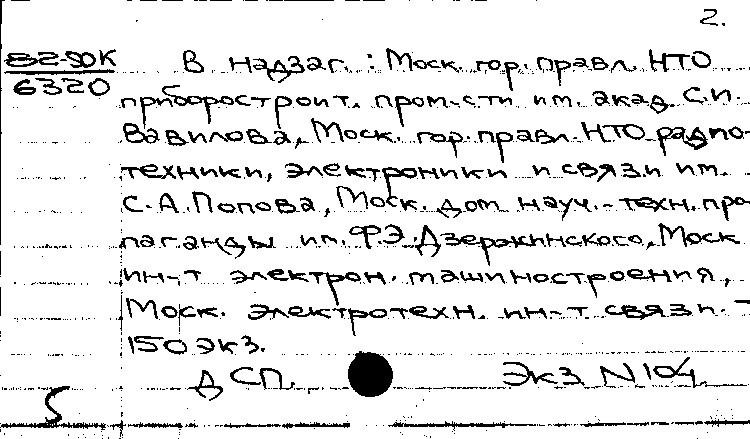 2.
82-90К
6320
В надзаг. : Моск. гор. правл. НТО
приборостроит. пром-сти им. акад. С.И.
Вавилова, Моск. гор. правл. НТО радио-
техники, электроники и связи им.
С.А. Попова, Моск. дом науч.-техн. про-
паганды им. Ф.Э. Дзержинского, Моск.
ин-т электрон. машиностроения,
Моск. электротехн. ин-т связи. -
150 экз.
ДСП. Экз. N 104.
5